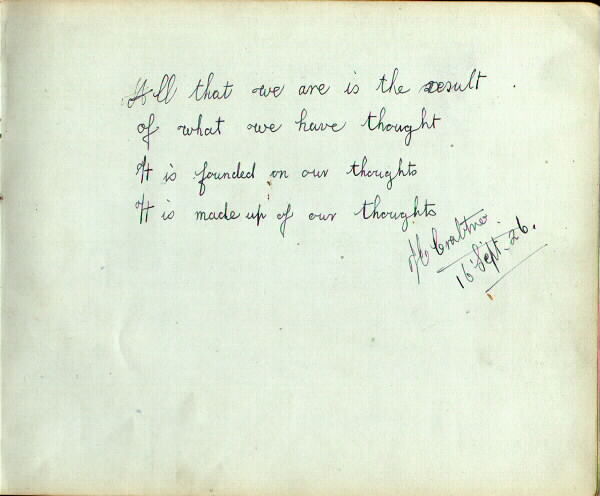 All that we are is the result
of what we have thought
It is founded on our thoughts
It is made up of our thoughts
16 Sept. 26.